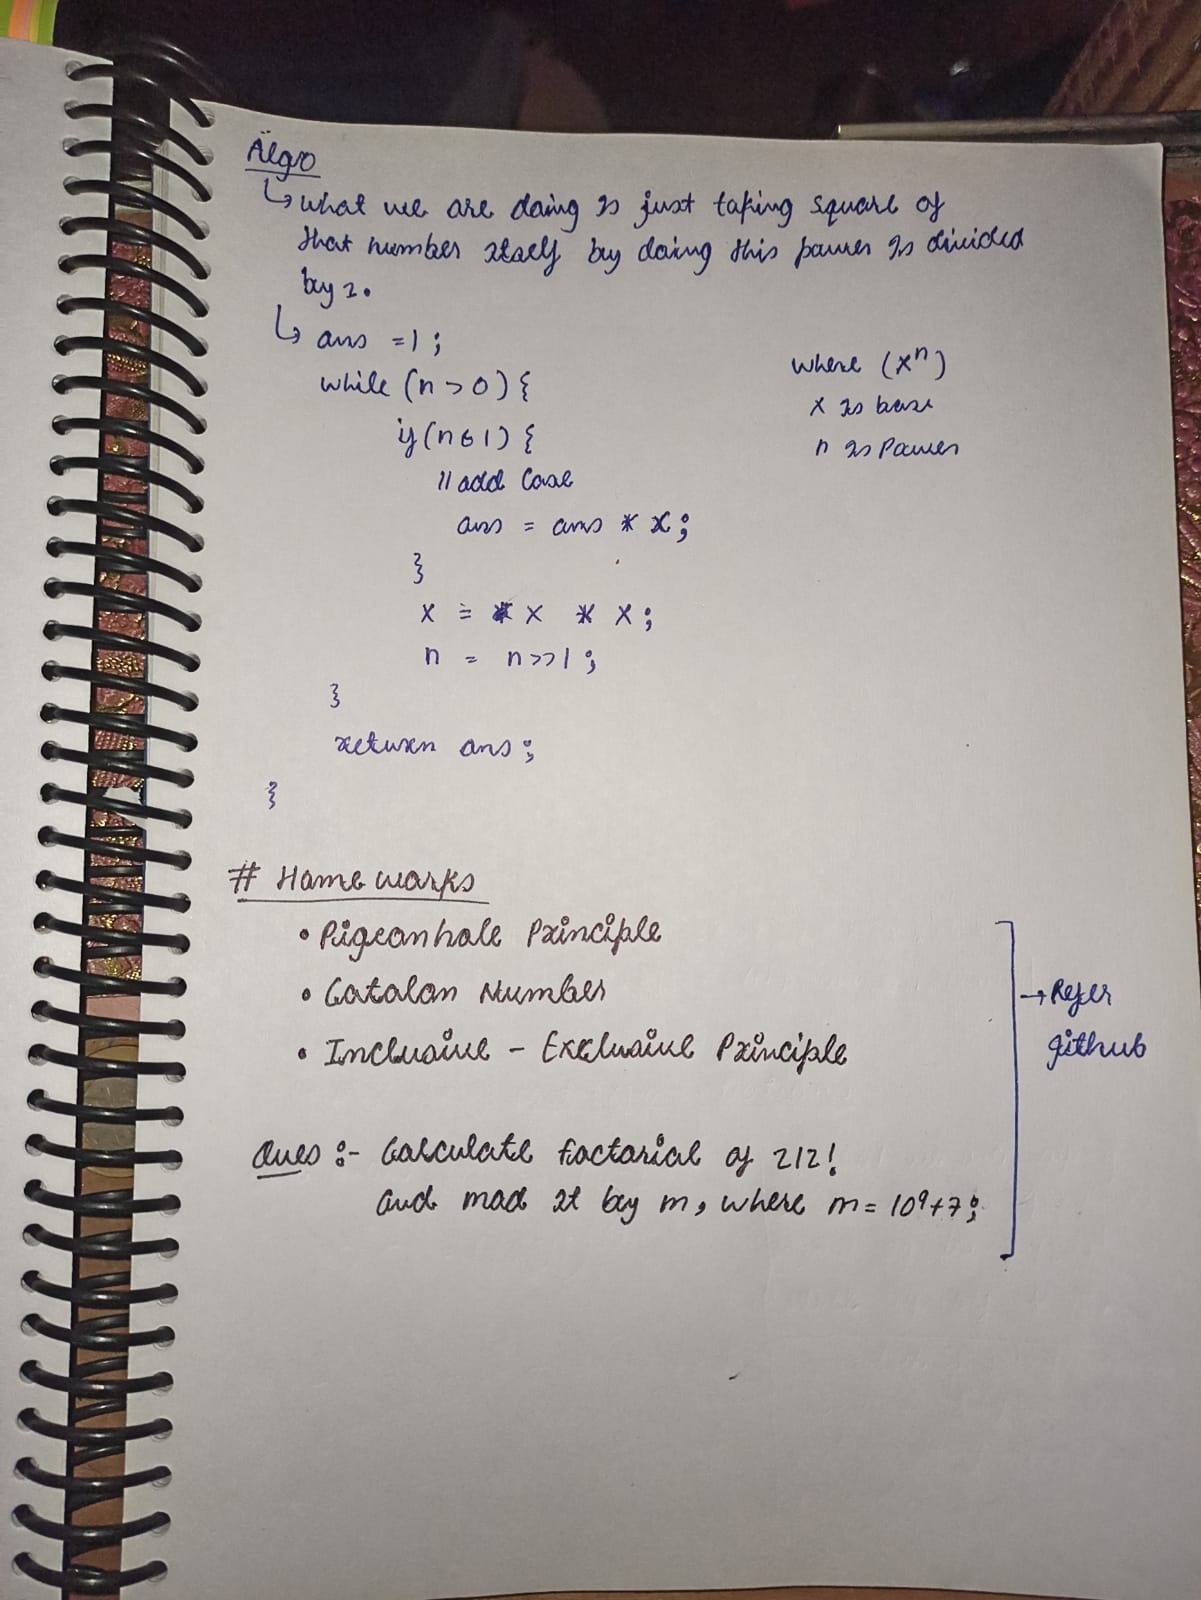 Algo
↳ what we are doing is just taking square of
that number itself by doing this power is divided
by 2.
↳ ans = 1;
while (n > 0) {
if (n & 1) {
// add Case
ans = ans * x;
}
x = x * x;
n = n >> 1;
}
return ans;
}
where (xⁿ)
x is base
n is Power
# Home works
• Pigeonhole Principle
• Catalan Number
• Inclusive - Exclusive Principle
→ Refer
github
Ques :- Calculate factorial of 212!
and mod it by m, where m = 10⁹+7;